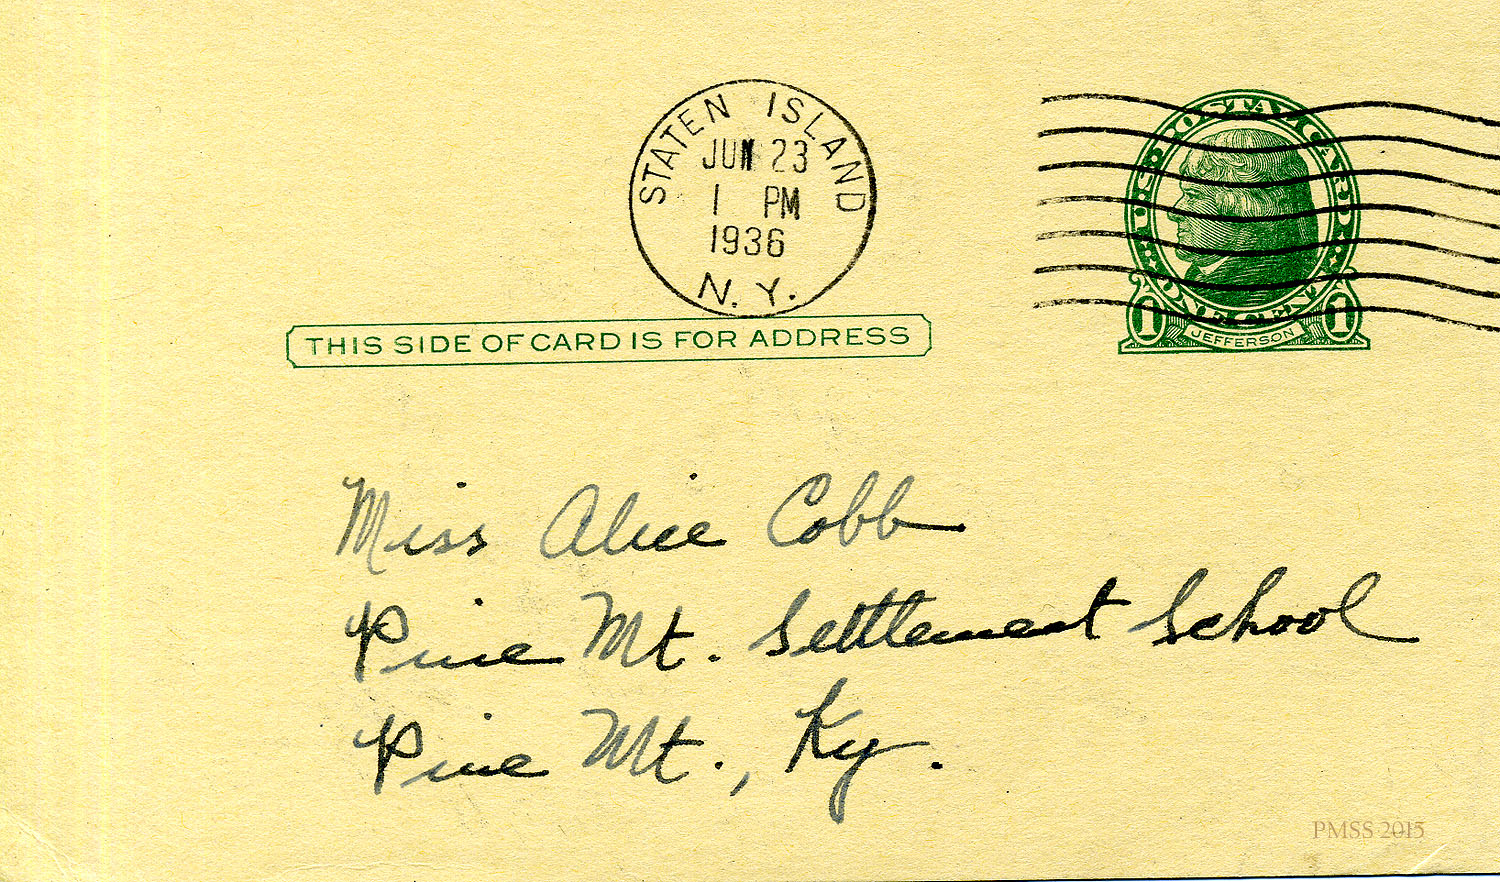 STATEN ISLAND
JUN 23
1 PM
1936
N. Y.
U.S. POSTAL CARD
ONE CENT
1 JEFFERSON 1
THIS SIDE OF CARD IS FOR ADDRESS
Miss Alice Cobb
Pine Mt. Settlement School
Pine Mt., Ky.
PMSS 2015